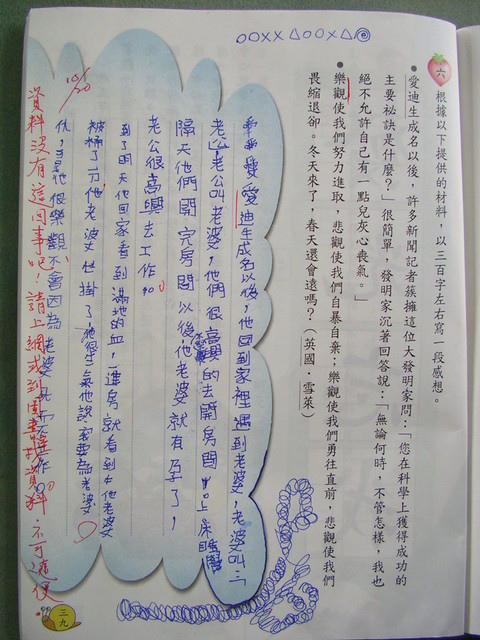 ○○××△○○×△
六 根據以下提供的材料，以三百字左右寫一段感想。
•愛迪生成名以後，許多新聞記者簇擁這位大發明家問：「您在科學上獲得成功的
主要祕訣是什麼？」很簡單，發明家沉著回答說：「無論何時，不管怎樣，我也
絕不允許自己有一點兒灰心喪氣。」
•樂觀使我們努力進取，悲觀使我們自暴自棄；樂觀使我們勇往直前，悲觀使我們
畏縮退卻。冬天來了，春天還會遠嗎？（英國．雪萊）
愛迪生成名以後，他回到家裡遇到老婆，老婆叫：「
老公」老公叫老婆，他們很高興的去開房間中上床睡覺
隔天他們開完房間以後，他老婆就有孕了，
老公很高興去工作。
到了明天他回家看到滿地的血，進房就看到他老婆
被桶了刀，他老婆也掛了，他很生氣他說家要為老婆
仇，可是他很樂觀不會因為老婆死而不作
10/20
資料沒有這回事吧！請上網或到圖書找資料，不可隨便。
三九